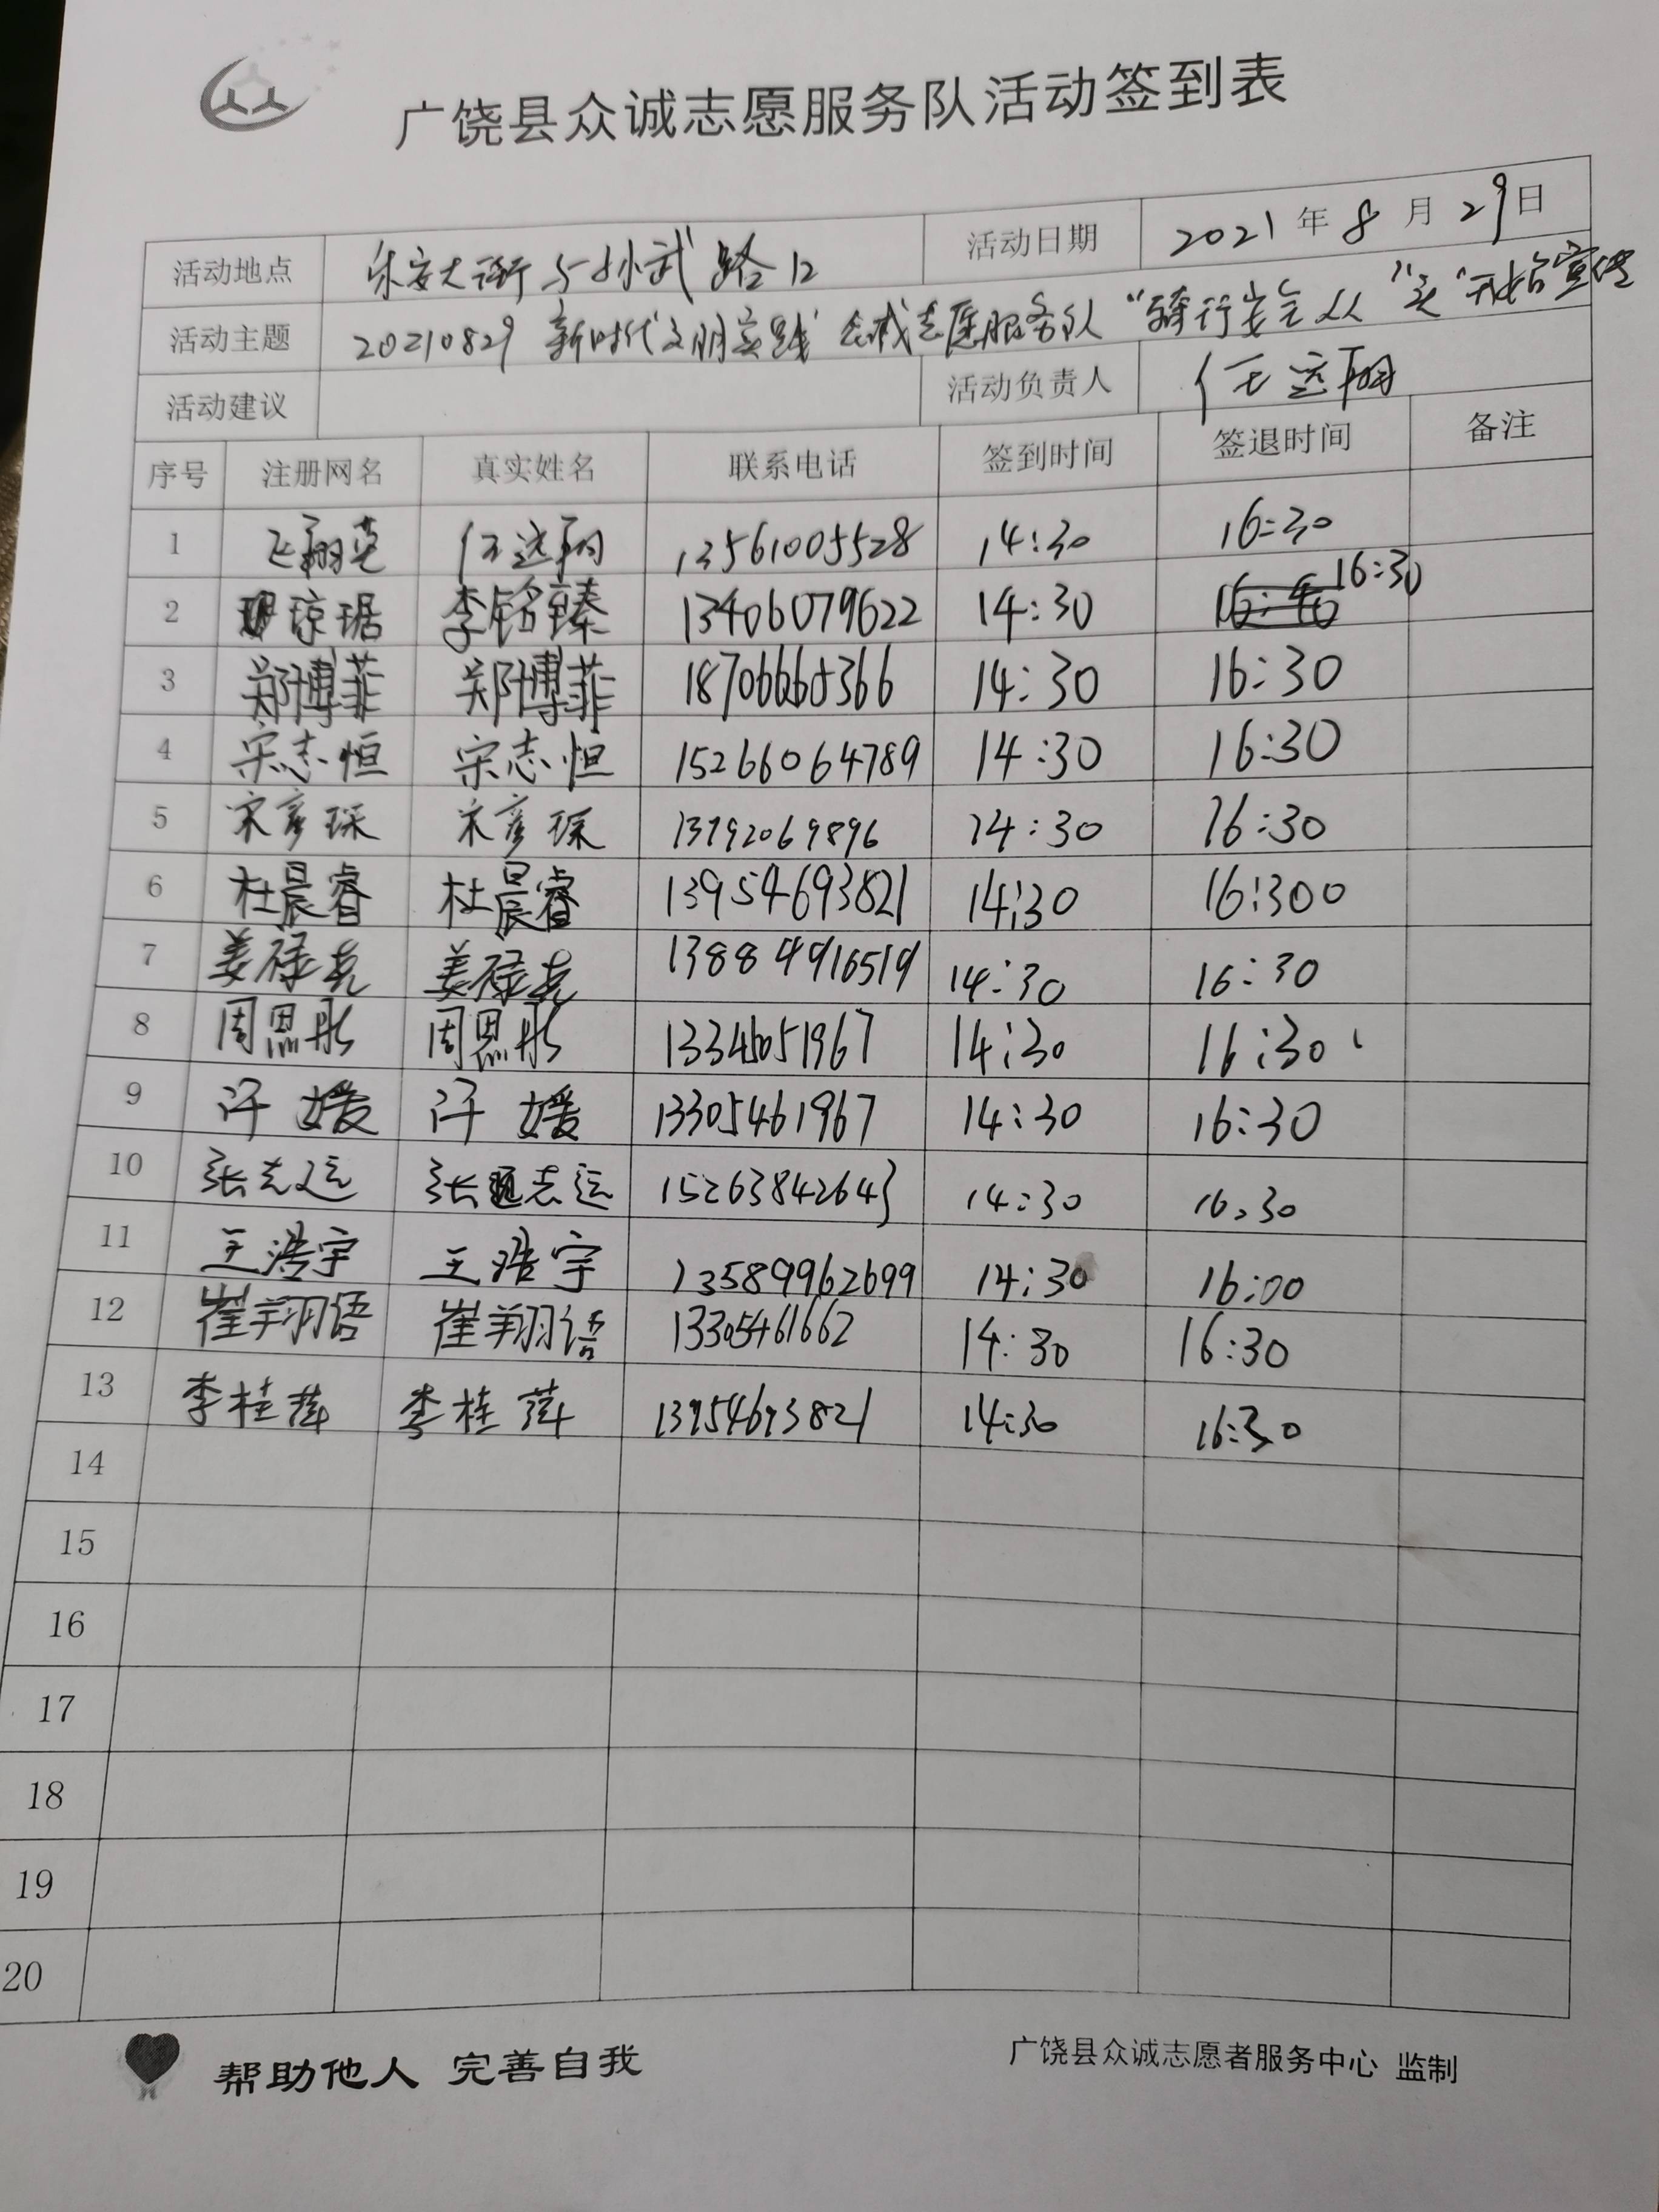 广饶县众诚志愿服务队活动签到表
活动地点 乐安大街与孙武路口 活动日期 2021年8月29日
活动主题 20210829 新时代文明实践 众诚志愿服务队“骑行安全从“头”开始宣传
活动建议 活动负责人 任远翔
序号 注册网名 真实姓名 联系电话 签到时间 签退时间 备注
1 飞翔 任远翔 13561005528 14:30 16:30
2 琼琚 李铭臻 13406079622 14:30 16:30
3 郑博菲 郑博菲 14:30 16:30
4 宋志恒 宋志恒 15266064789 14:30 16:30
5 宋彦琛 宋彦琛 13792069896 14:30 16:30
6 杜晨睿 杜晨睿 13954693821 14:30 16:300
7 姜禄尧 姜禄尧 13884916519 14:30 16:30
8 周恩彤 周恩彤 14:30 16:30
9 汗媛 汗媛 13305461967 14:30 16:30
10 张志运 张志运 15263842643 14:30 16:30
11 王浩宇 王浩宇 13589962699 14:30 16:00
12 崔翔语 崔翔语 13305461662 14:30 16:30
13 李桂萍 李桂萍 13954693821 14:30 16:30
14
15
16
17
18
19
20
帮助他人 完善自我 广饶县众诚志愿者服务中心 监制